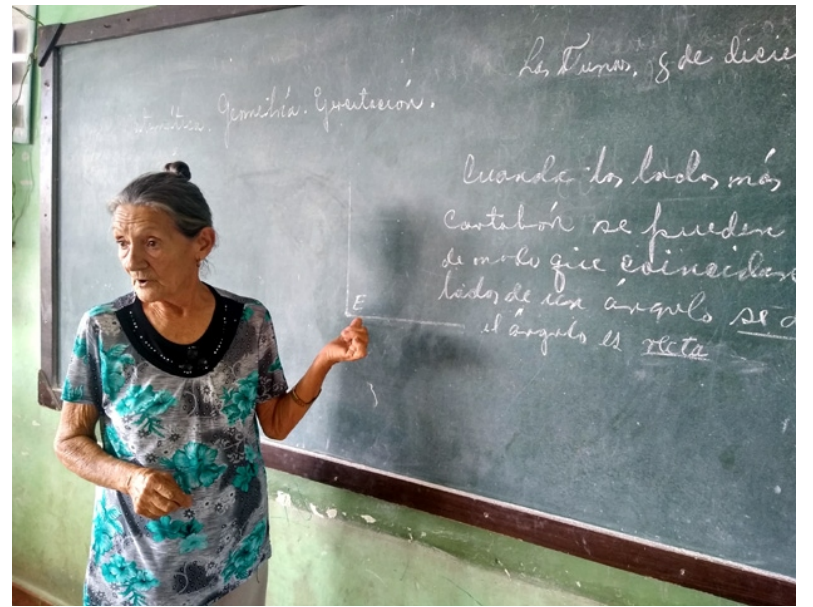 Las Tunas, 8 de dicie
Matemática. Geometría. Ejercitación.
Cuando los lados más
cartabón se pueden
de modo que coincidan
lados de un ángulo se d
el ángulo es recto
E